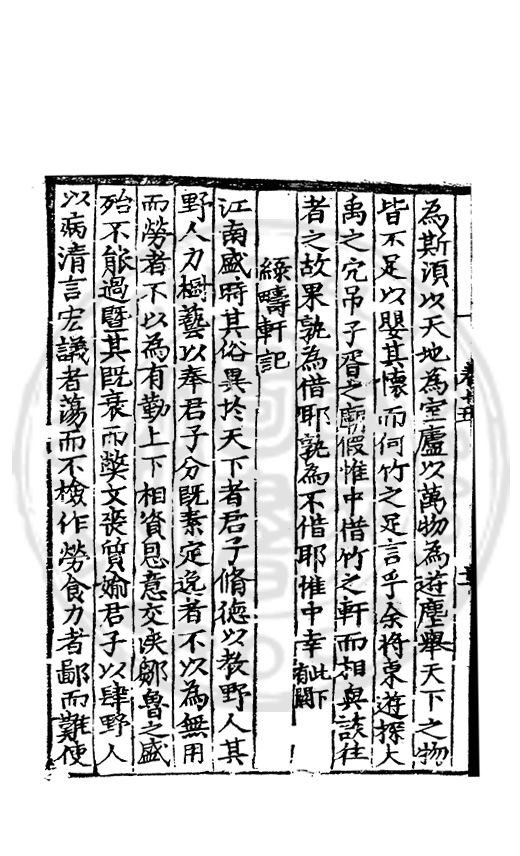 為斯湏以天地為室廬以萬物為逰塵舉天下之物
皆不足以嬰其懐而何竹之足言乎余將東逰探大
禹之穴吊子胥之廟假惟中借竹之軒而相與談往
者之故果孰為借耶孰為不借耶惟中幸此下有闕
綠疇軒記
江南盛時其俗異於天下者君子脩德以教野人其
野人力樹藝以奉君子分既素定逸者不以為無用
而勞者不以為有勤上下相資恩意交浹鄒魯之盛
殆不能過暨其既衰而獘文喪質媮君子以肆野人
以病清言宏議者蕩而不檢作勞食力者鄙而難使